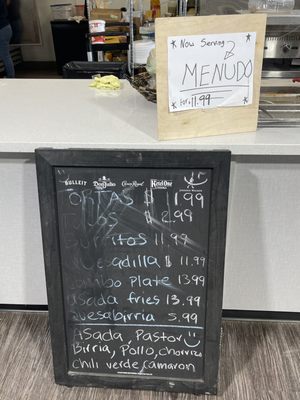 *Now Serving *
MENUDO
* For $11.99 *
BULLEIT Don Julio Crown Royal Ketel One
ORTAS $11.99
$2.99
Burritos 11.99
uesadilla $11.99
ombo plate 13.99
asada fries 13.99
uesabirria 5.99
Asada, Pastor
Birria, Pollo, chorrizo
chili verde, camaron